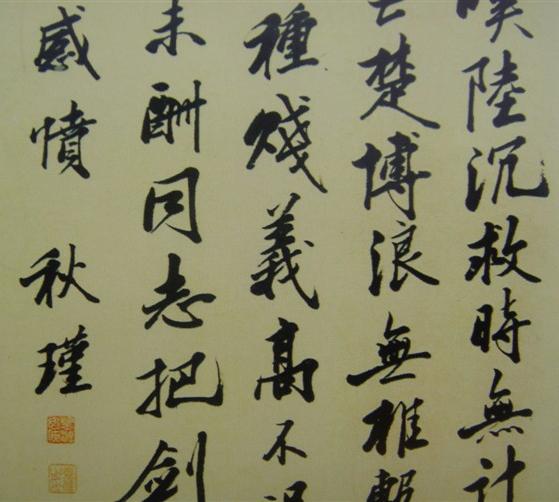 嘆陸沉救時無計
亡楚博浪無椎
種賤義高不
未酬同志把劍
感憤 秋瑾